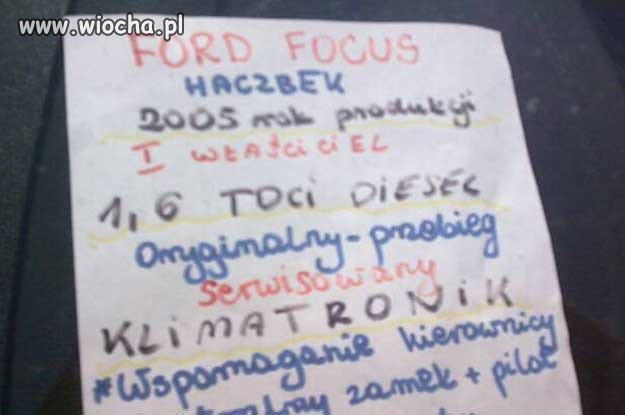 www.wiocha.pl
FORD FOCUS
HACZBEK
2005 rok produkcji
I WŁAŚCICIEL
1,6 TDCI DIESEL
Oryginalny-przebieg
serwisowany
KLIMATRONIK
#Wspomaganie kierownicy
zamek + pilot